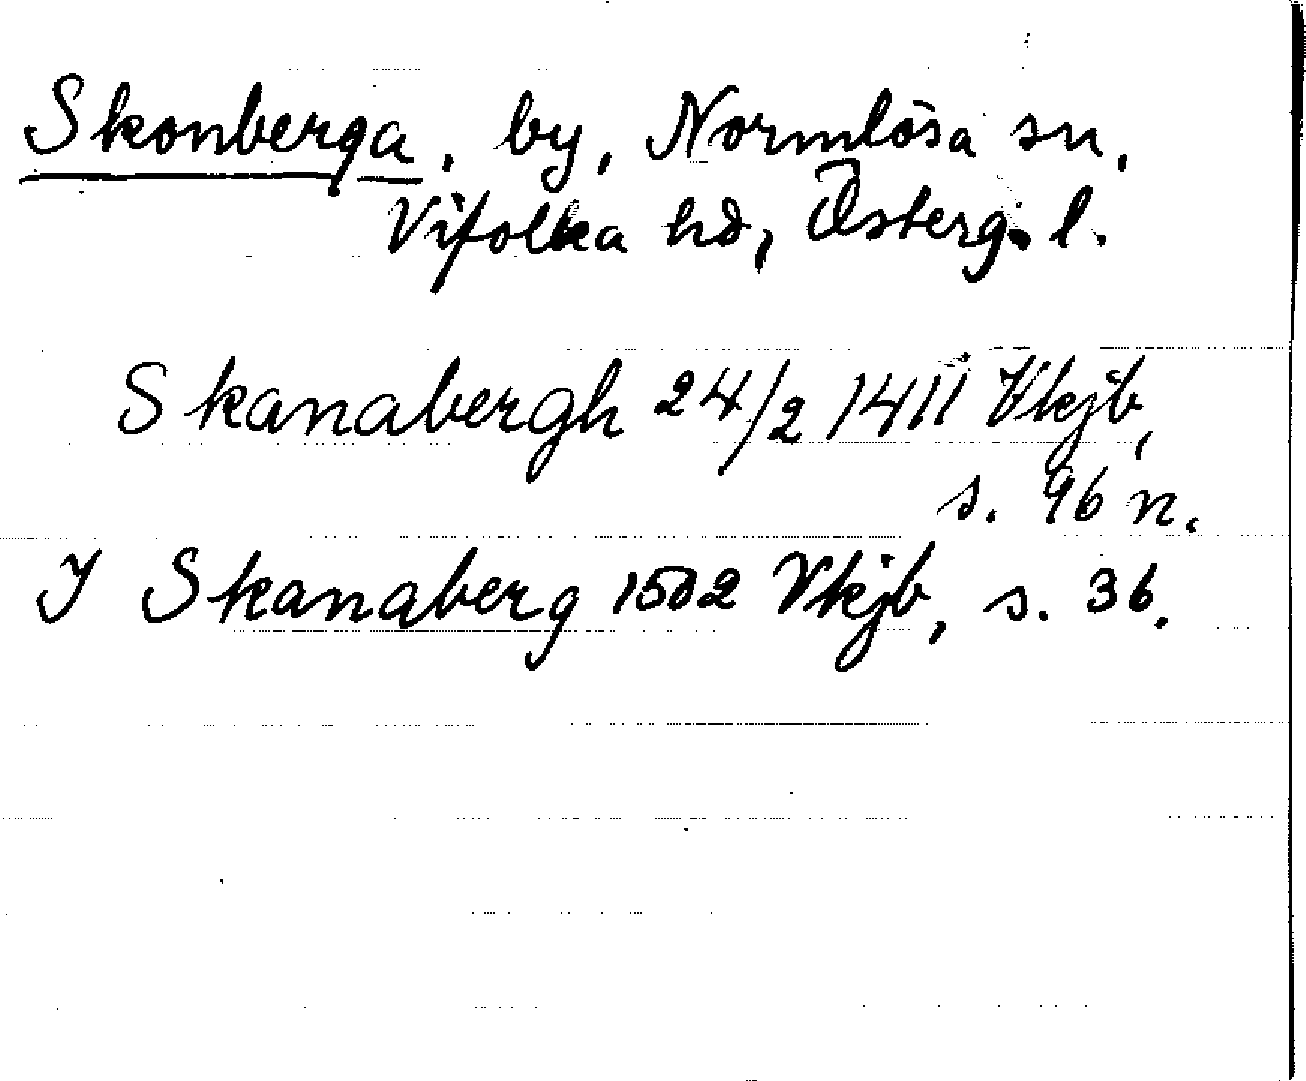 Skonberga, by, Normlösa sn,
Vifolka hd, Österg. l.
Skanabergh 24/2 1411 Vkjb,
s. 96 n.
J Skanaberg 1502 Vkjb, s. 36.